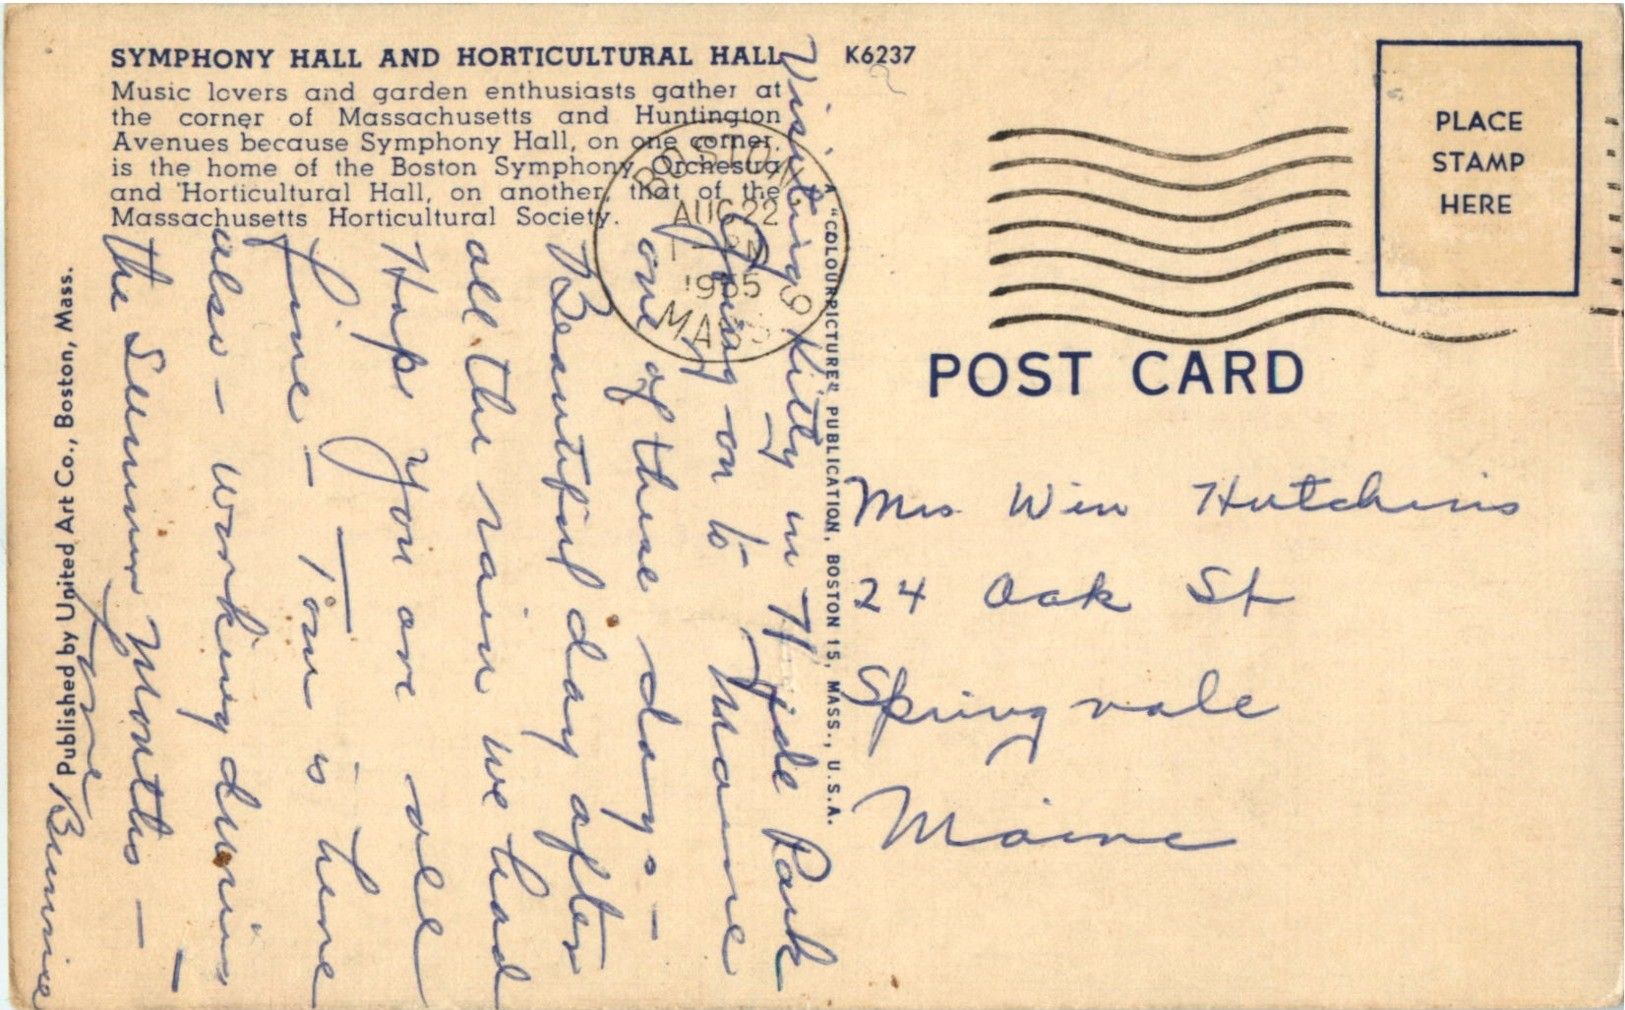 SYMPHONY HALL AND HORTICULTURAL HALL
K6237
Music lovers and garden enthusiasts gather at
the corner of Massachusetts and Huntington
Avenues because Symphony Hall, on one corner,
is the home of the Boston Symphony Orchestra
and Horticultural Hall, on another, that of the
Massachusetts Horticultural Society.
BOSTON
AUG 22
PM
1955
MASS
PLACE
STAMP
HERE
POST CARD
A "COLOURPICTURE" PUBLICATION, BOSTON 15, MASS., U.S.A.
Published by United Art Co., Boston, Mass.
Visiting Kitty in Hyde Park
Going on to Maine
one of these days -
Beautiful day after
all the rain we had
Hope you are all
fine - Tom is here
also - working during
the Summer Months -
Love
Bunnie
Mrs Win Hutchins
24 Oak St
Springvale
Maine